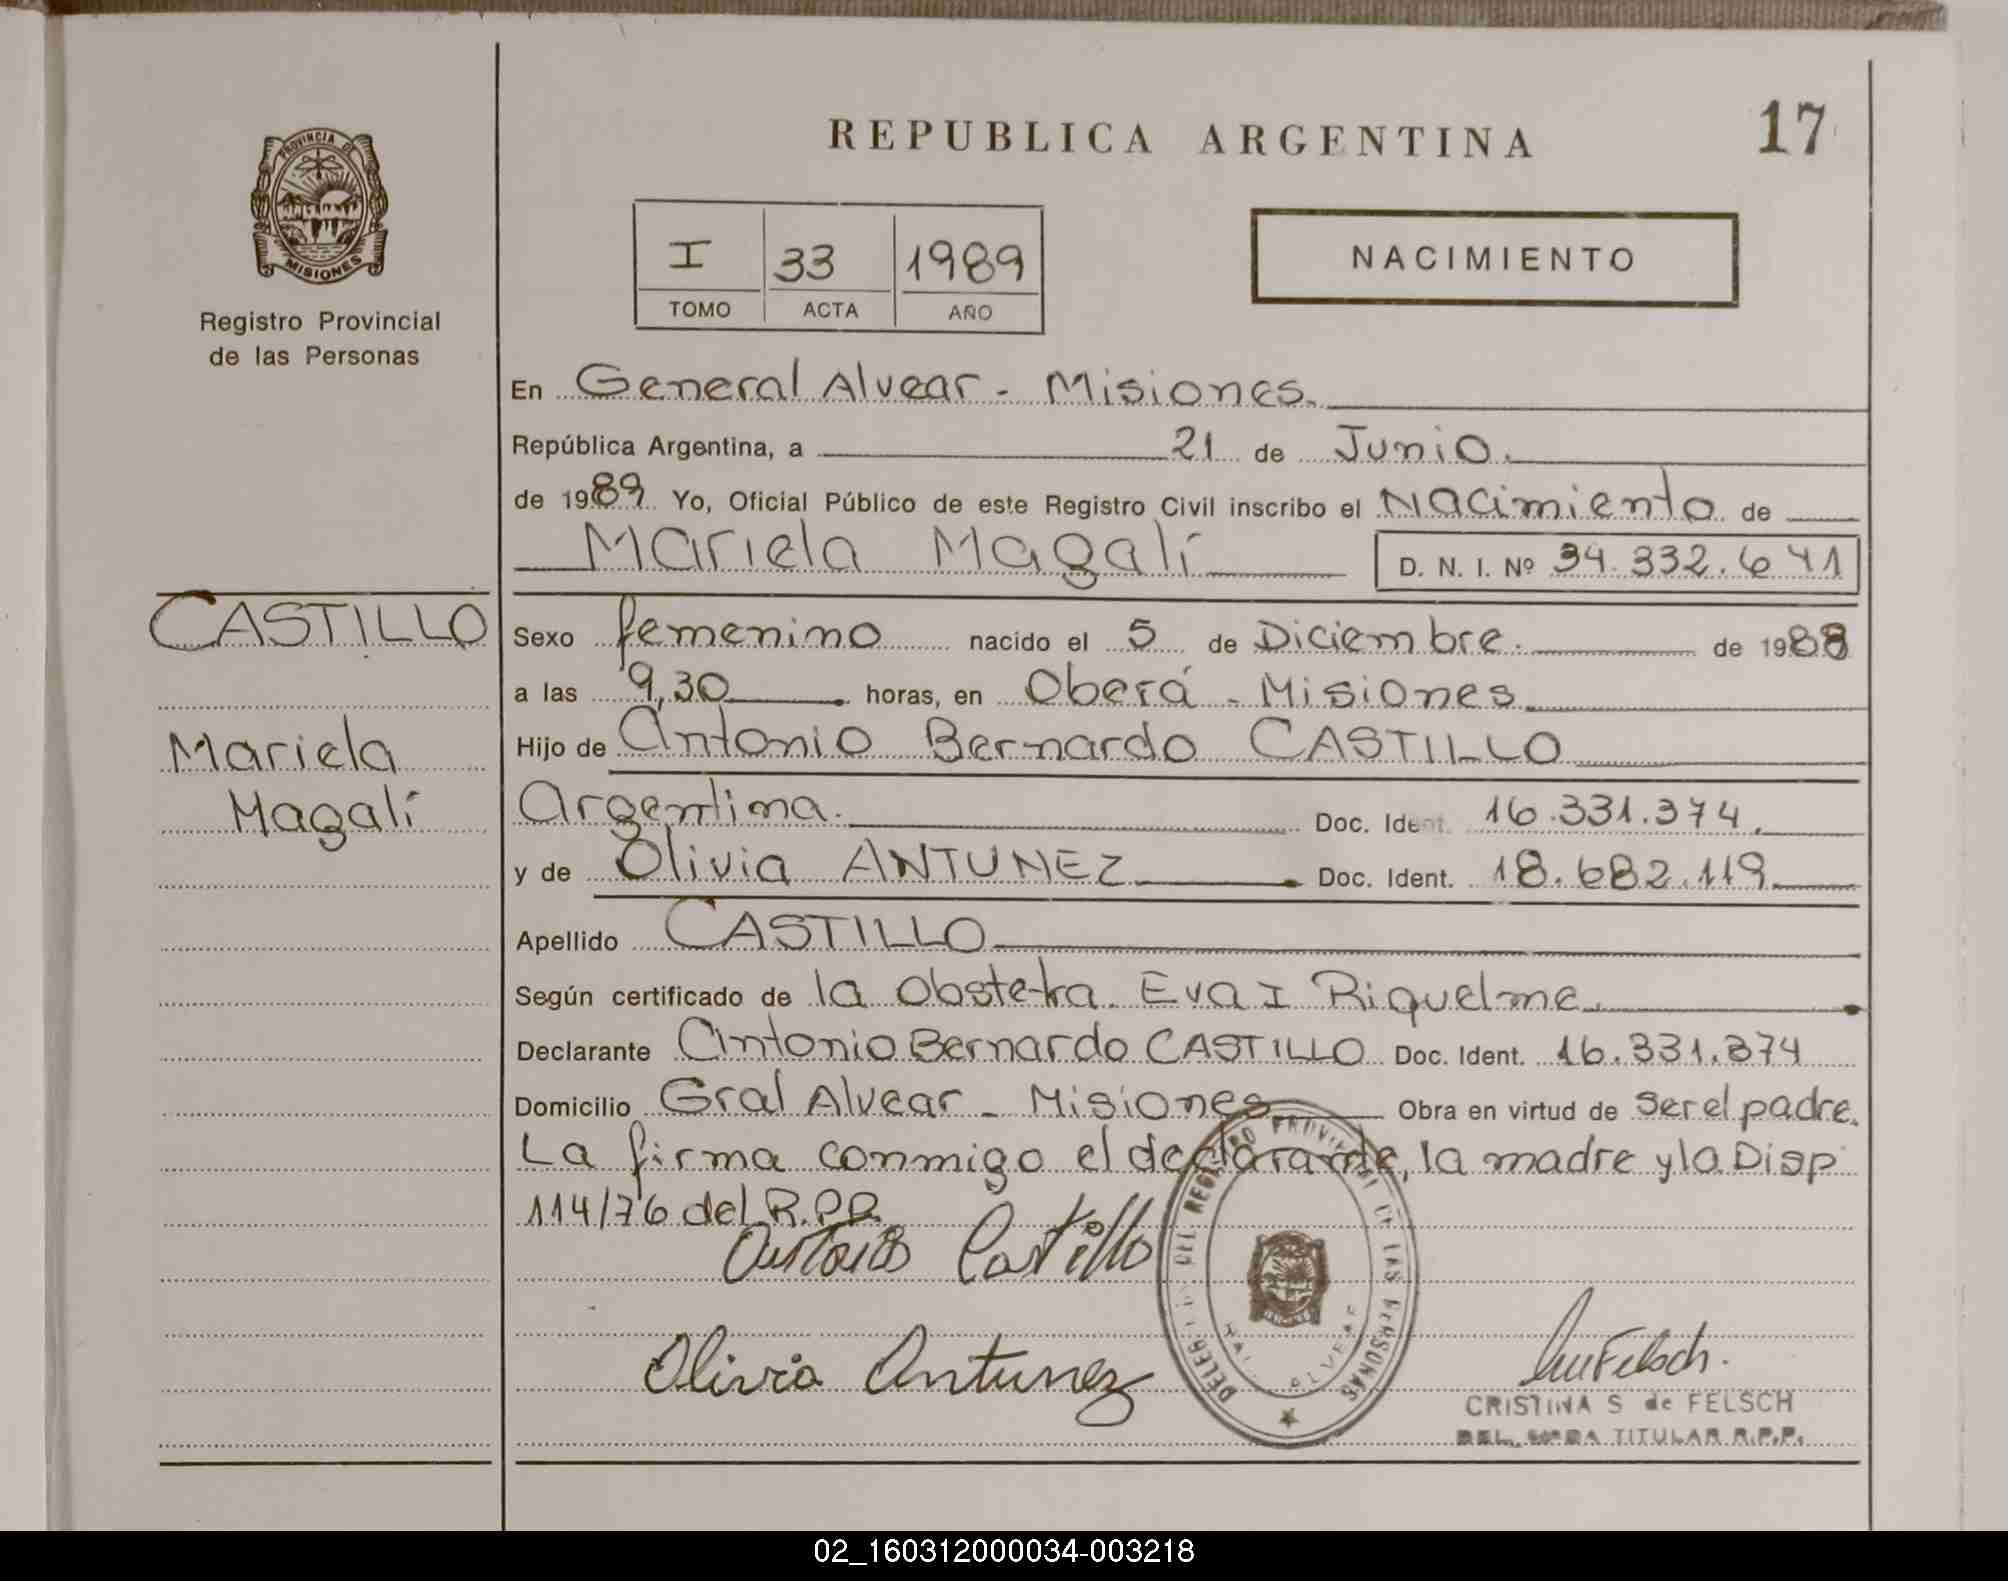 REPUBLICA ARGENTINA
17
PROVINCIA DE MISIONES
Registro Provincial
de las Personas
I 33 1989
TOMO ACTA AÑO
NACIMIENTO
En General Alvear - Misiones.
República Argentina, a 21 de Junio.
de 1989 Yo, Oficial Público de este Registro Civil inscribo el Nacimiento de
Mariela Magalí D. N. I. Nº 34.332.641
CASTILLO
Mariela
Magalí
Sexo femenino nacido el 5 de Diciembre. de 1988
a las 9,30 horas, en Oberá - Misiones
Hijo de Antonio Bernardo CASTILLO
Argentina. Doc. Ident. 16.331.374.
y de Olivia ANTUNEZ Doc. Ident. 18.682.119
Apellido CASTILLO
Según certificado de la Obstetra Eva I Riquelme.
Declarante Antonio Bernardo CASTILLO Doc. Ident. 16.331.374
Domicilio Gral Alvear - Misiones Obra en virtud de ser el padre.
La firma conmigo el declarante, la madre y la Disp
114/76 del R.P.P.
Antonio Castillo
Olivia Antunez
DEL REGISTRO PROVINCIAL DE LAS PERSONAS
GRAL. ALVEAR
Felsch.
CRISTINA S de FELSCH
DEL. TITULAR R.P.P.
02_160312000034-003218